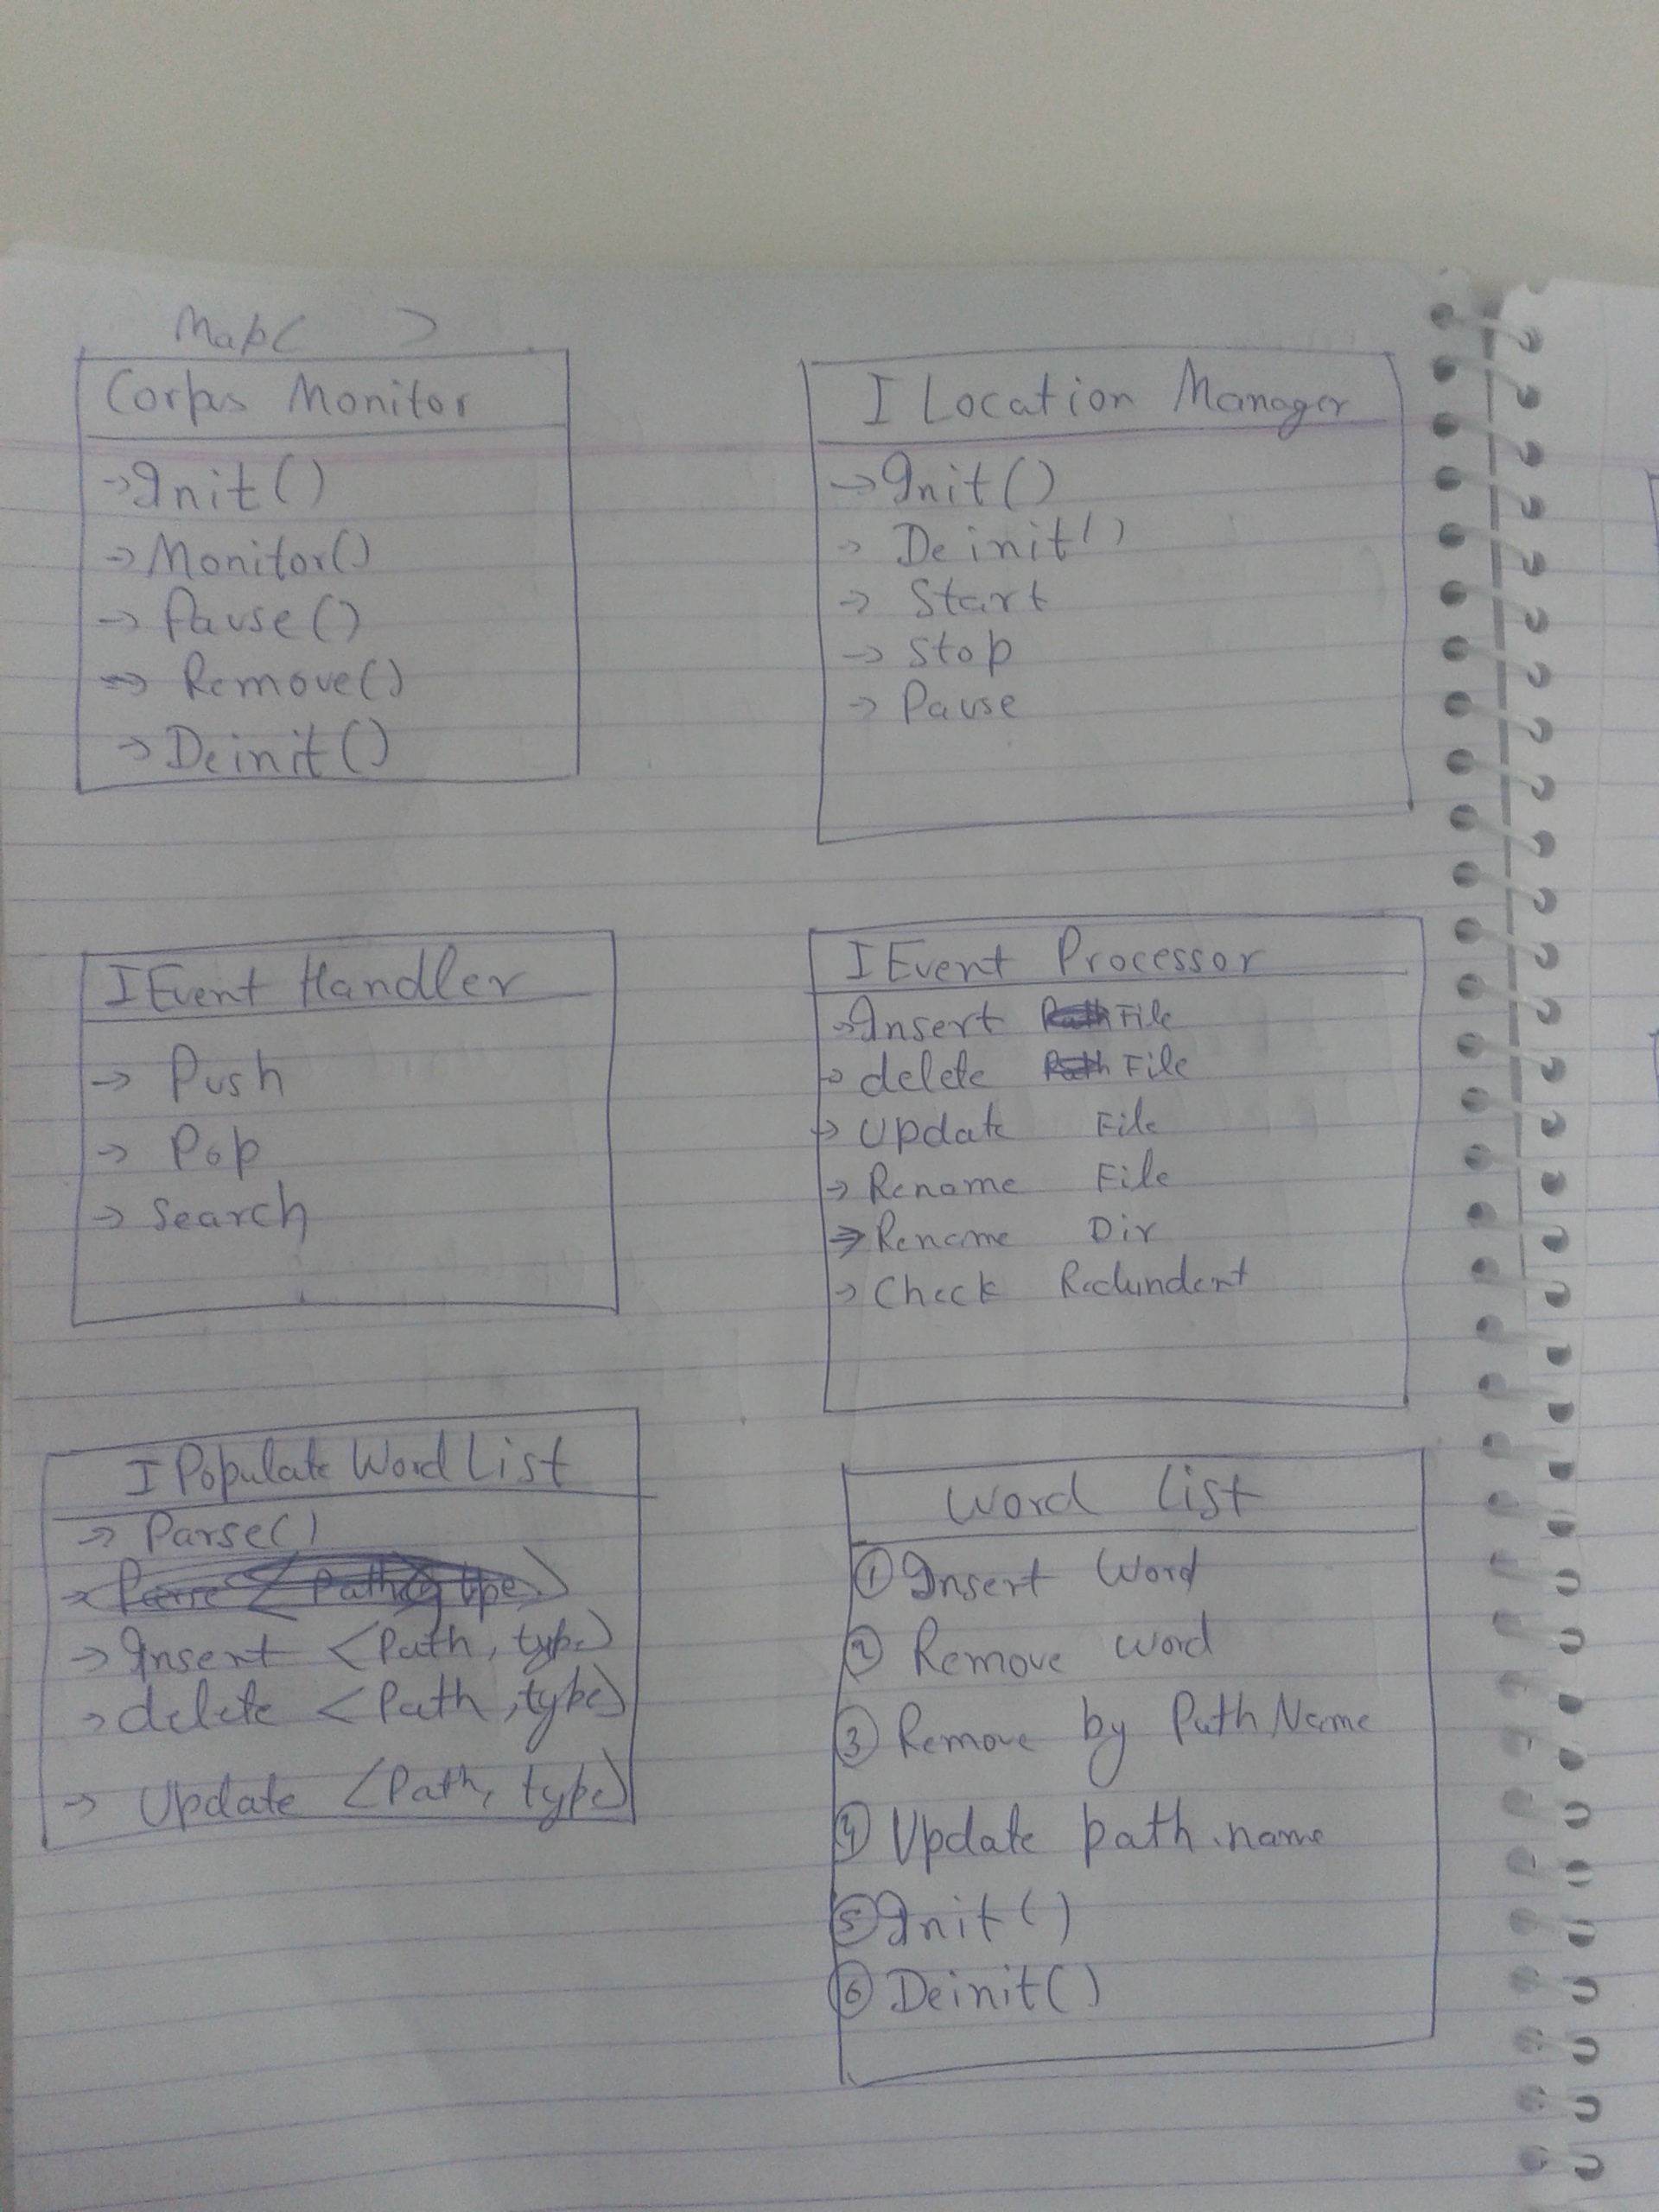 Map<      >
Corpus Monitor
→ Init()
→ Monitor()
→ Pause()
→ Remove()
→ Deinit()
I Location Manager
→ Init()
→ Deinit()
→ Start
→ Stop
→ Pause
I Event Handler
→ Push
→ Pop
→ Search
I Event Processor
→ Insert File
→ delete File
→ Update File
→ Rename File
→ Rename Dir
→ Check Redundent
I Populate Word List
→ Parse()
→ Insert <Path, type>
→ delete <Path, type>
→ Update <Path, type>
Word List
① Insert Word
② Remove word
③ Remove by Path Name
④ Update path name
⑤ Init()
⑥ Deinit()